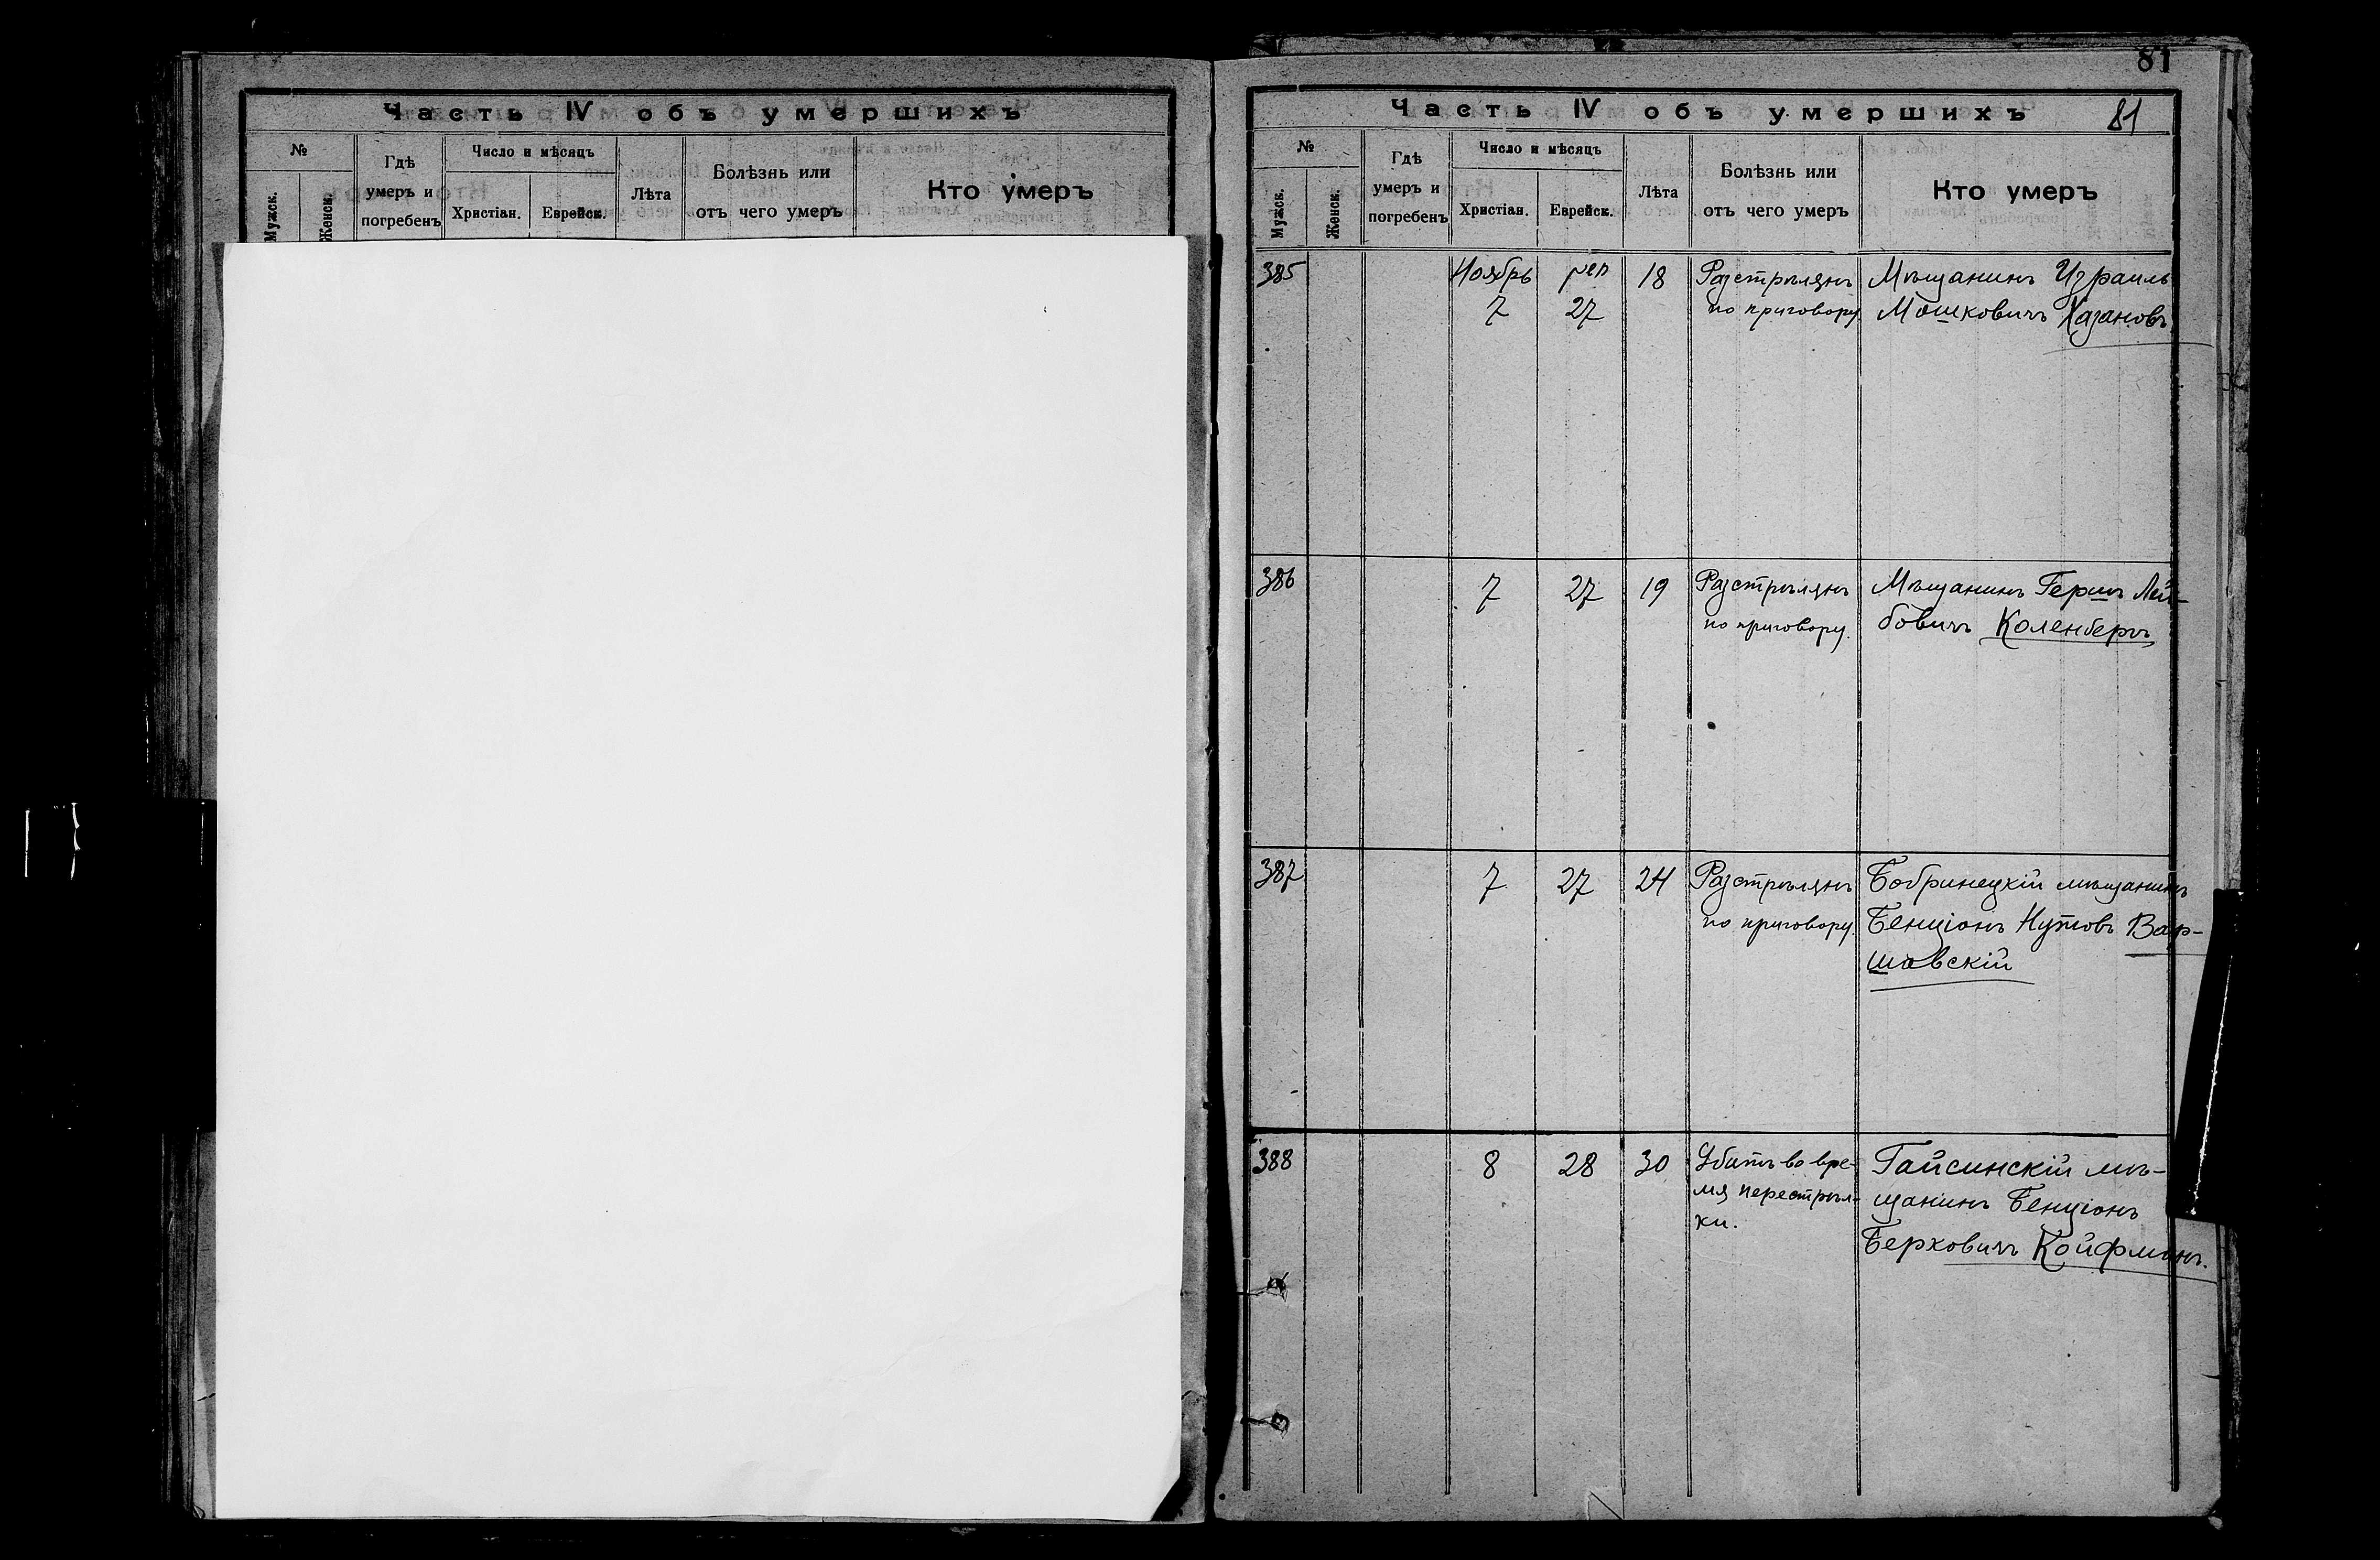 Часть IV объ умершихъ
№
Мужск.
Женск.
Гдѣ
умеръ и
погребенъ
Число и мѣсяцъ
Христіан.
Еврейск.
Лѣта
Болѣзнь или
отъ чего умеръ
Кто умеръ
81
Часть IV объ умершихъ
81
№
Мужск.
Женск.
Гдѣ
умеръ и
погребенъ
Число и мѣсяцъ
Христіан.
Еврейск.
Лѣта
Болѣзнь или
отъ чего умеръ
Кто умеръ
385
Ноябрь
7
27
18
Разстрѣлянъ
по приговору.
Мѣщанинъ Израиль
Мошковичъ Хазановъ
386
7
27
19
Разстрѣлянъ
по приговору.
Мѣщанинъ Гершъ Лей-
бовичъ Коленберъ
387
7
27
24
Разстрѣлянъ
по приговору.
Бобринецкій мѣщанинъ
Бенціонъ Нутовъ Вар-
шавскій
388
8
28
30
Убитъ во вре-
мя перестрѣл-
ки.
Гайсинскій мѣ-
щанинъ Бенціонъ
Берковичъ Койфманъ.